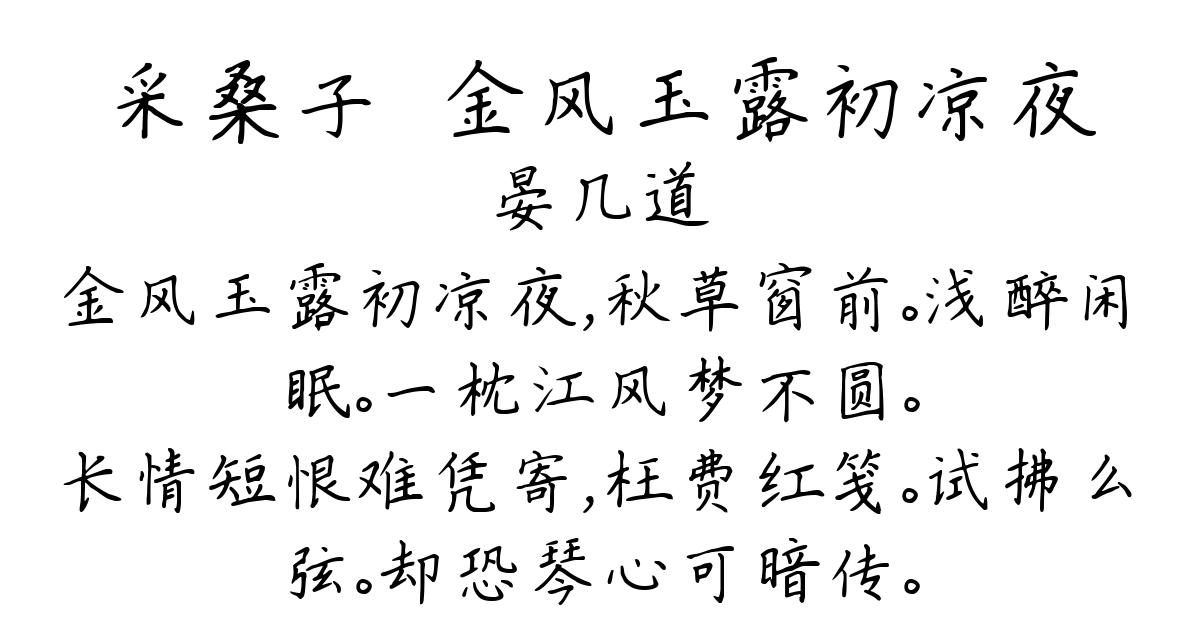 采桑子 金风玉露初凉夜
晏几道
金风玉露初凉夜,秋草窗前。浅醉闲
眠。一枕江风梦不圆。
长情短恨难凭寄,枉费红笺。试拂么
弦。却恐琴心可暗传。